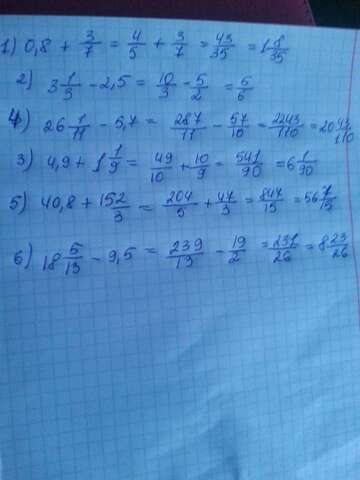 1) 0,8 + 3/7 = 4/5 + 3/7 = 43/35 = 1 8/35
2) 3 1/3 - 2,5 = 10/3 - 5/2 = 5/6
4) 26 1/11 - 5,7 = 287/11 - 57/10 = 2243/110 = 20 43/110
3) 4,9 + 1 1/9 = 49/10 + 10/9 = 541/90 = 6 1/90
5) 40,8 + 15 2/3 = 204/5 + 47/3 = 847/15 = 56 7/15
6) 18 5/13 - 9,5 = 239/13 - 19/2 = 231/26 = 8 23/26